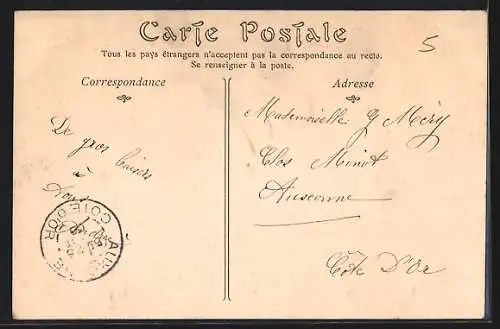 Carte Postale
Tous les pays étrangers n'acceptent pas la correspondance au recto.
Se renseigner à la poste.
5
Correspondance
Adresse
De gros baisers
à
Mademoiselle G Méry
Clos Minot
Auxonne
Côte D'Or
CÔTE D'OR